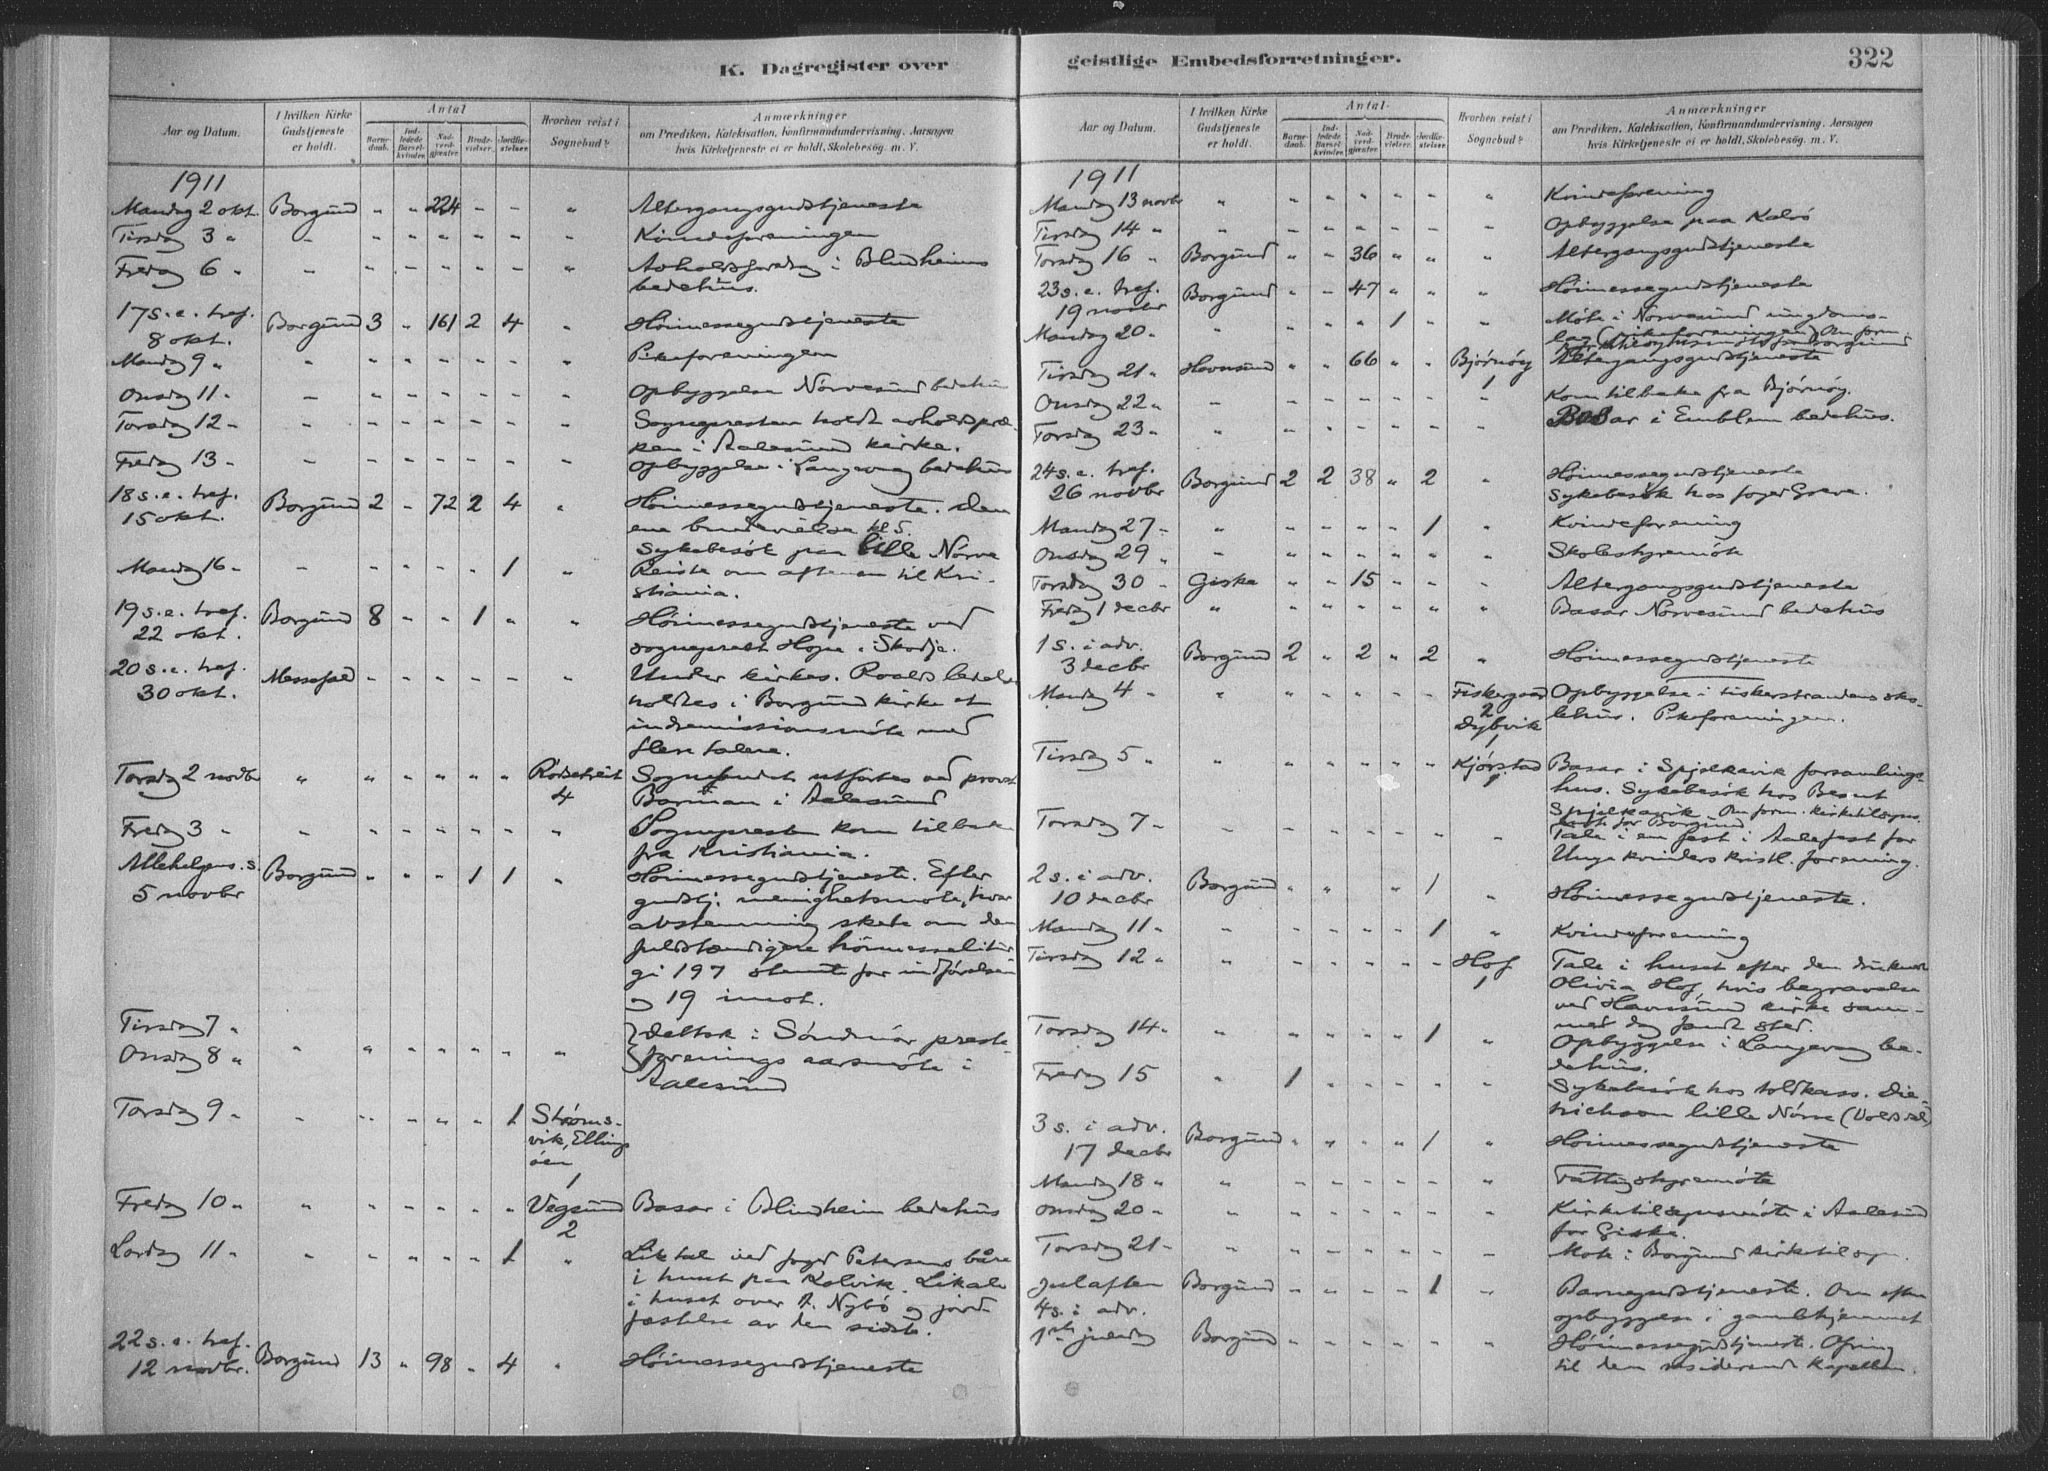 K. Dagregister over
Aar og Datum.
I hvilken Kirke Gudstjeneste er holdt.
Antal
Barne-daab.
Ind-ledede Barsel-kvinder.
Nad-verd-gjæster.
Brude-vielser.
Jordfæ-stelser.
Hvorhen reist i Sognebud?
Anmærkninger
om Prædiken, Katekisation, Konfirmandundervisning, Aarsagen
hvis Kirketjeneste ei er holdt, Skolebesøg m. V.
1911
Mandag 2 okt. Borgund " " 224 - - " Altergangsgudstjeneste
Tirsdag 3 " - " " " " " " Kvindeforeningen
Fredag 6 " - - - - - - " Avholdsforedrag i Blindheims
bedehus.
17 s. e. tref.
8 okt. Borgund 3 " 161 2 4 " Høimessegudstjeneste
Mandag 9 " " " " " " " " Pikeforeningen
Onsdag 11 " - " " " " " - Opbyggelse Nørvesund bedehus
Torsdag 12 - - - - - - - - Sognepresten holdt avholdspræ-
ken i Aalesund kirke.
Fredag 13 - - - - - - - - Opbyggelse i Langevaag bedehus
18 s. e. tref.
15 okt. Borgund 2 - 72 2 4 " Høimessegudstjeneste. Den
ene brudevielse kl 5.
Sykebesøk paa lille Nørve
Mandag 16 - - - - - - 1 " Reiste om aftenen til Kri-
stiania.
19 s. e. tref.
22 okt. Borgund 8 " " 1 " " Høimessegudstjeneste ved
sogneprest Hope i Skodje.
20 s. e. tref.
30 okt. Messefald - - - - - - Under kirkes. Roalds ledelse
holdtes i Borgund kirke et
indremissionsmøte med
flere talere.
Torsdag 2 novbr " " " " " " Rødsetreit
4
Sognebudet utførtes ved provst
Barman i Aalesund
Fredag 3 - " - - - - - " Sognepresten kom tilbake
fra Kristiania.
Allehelgens. s.
5 novbr Borgund " " " 1 1 " Høimessegudstjeneste. Efter
gudstj. menighetsmøte, hvor
avstemning skede om den
fuldstændigere høimesselitur
gi 197 stemte for indførelsen
og 19 imot.
Tirsdag 7 "
Onsdag 8 " " " " " " " " Deltok i Søndmør preste-
forenings aarsmøte i
Aalesund
Torsdag 9 " - " " " " 1 Strøms-
vik, Ellings
øen
1
Fredag 10 " " " " " " " Vegsund
2
Basar i Blindheim bedehus
Lørdag 11 " " " " " " 1 " Liktal ved foged Petersens båre
i huset paa Kolvik. Liktale
i huset over A. Nybø og jord-
fæstelse av den sidste.
22 s. e. tref.
12 novbr. Borgund 13 " 98 " 4 " Høimessegudstjeneste
geistlige Embedsforretninger.
322
Aar og Datum.
I hvilken Kirke Gudstjeneste er holdt.
Antal
Barne-daab.
Ind-ledede Barsel-kvinder.
Nad-verd-gjæster.
Brude-vielser.
Jordfæ-stelser.
Hvorhen reist i Sognebud?
Anmærkninger
om Prædiken, Katekisation, Konfirmandundervisning, Aarsagen
hvis Kirketjeneste ei er holdt, Skolebesøg m. V.
1911
Mandag 13 novbr " " " " " " " Kvindeforening
Tirsdag 14 " " - - - - - " Opbyggelse paa Kalvø
Torsdag 16 " Borgund " " 36 " " " Altergangsgudstjeneste
23 s. e. tref.
19 novbr Borgund " - 47 " " " Høimessegudstjeneste
Mandag 20 - " " " " 1 " " Møte i Nørvesund ungdoms-
lag (pikeforeningen) Om form.
kirketilsynsmøte for Borgund
Tirsdag 21 " Havnsund " " 66 " " Bjørnøy
1
Altergangsgudstjeneste
Onsdag 22 " - - - - - - " Kom tilbake fra Bjørnøy.
Torsdag 23 - " - - - - - - Basar i Emblem bedehus.
24 s. e. tref.
26 novbr Borgund 2 2 38 " 2 " Høimessegudstjeneste
Sykebesøk hos foged Greve.
Mandag 27 - " " " " " 1 " Kvindeforening
Onsdag 29 " - " " " " " " Skolestyremøte
Torsdag 30 - Giske " " 15 - - " Altergangsgudstjeneste
Fredag 1 decbr " " " " " " " Basar Nørvesund bedehus
1 s. i adv.
3 decbr Borgund 2 " 2 " 2 " Høimessegudstjeneste
Mandag 4 " " " - - - - Fiskergaard
2
Dybvik
1
Opbyggelse i Fiskerstrandens sko-
lehus. Pikeforeningen.
Tirsdag 5 " " " " " " " Kjørstad
1
Basar i Spjelkavik forsamlings-
hus. Sykebesøk hos Berent
Spjelkavik. Om form. kirketilsyns-
møte for Borgund
Torsdag 7 - - - - - - - - Tale i en fest i Aalesund for
Unge kvinders kristl. forening.
2 s. i adv.
10 decbr Borgund " " " 1 " Høimessegudstjeneste.
Mandag 11 - " - - - - 1 " Kvindeforening
Tirsdag 12 " " - - - - - Hof
1
Tale i huset efter den druknede
Olivia Hof, hvis begravelse
ved Havnsund kirke sam-
me dag fandt sted.
Torsdag 14 - " " " " " 1 " Opbyggelse i Langevaag be-
dehus.
Fredag 15 " 1 - - - - " Sykebesøk hos toldkass. Die-
trichson lille Nørve (Volsdal)
3 s. i adv.
17 decbr Borgund " " " " 1 " Høimessegudstjeneste
Mandag 18 " " - - - - - " Fattigstyremøte
Onsdag 20 " " - - - - - " Kirketilsynsmøte i Aalesund
for Giske.
Torsdag 21 - " - - - - - - Møte i Borgund kirketilsyn.
Julaften
4 s. i adv. Borgund " " " " 1 " Barnegudstjeneste. Om eften
opbyggelse i gamlehjemmet
1ste juledag Borgund - - - - - - Høimessegudstjeneste. Ofring
til den residerende kapellan.